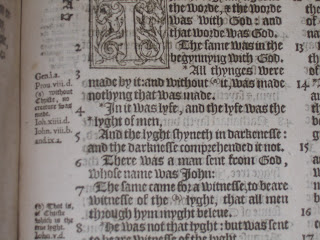 T
the worde, & the worde
was with God: and
that worde was God.
2 The same was in the
begynnyng with God.
3 *All thynges were
made by it: and without it, was made
nothyng that was made.
4 *In it was lyfe, and the lyfe was the
lyght of men,
5 And the lyght shyneth in darkenesse:
and the darknesse comprehended it not.
6 There was a man sent from God,
whose name was Iohn:
7 The same came for a witnesse, to beare
witnesse of the lyght, that all men
through hym myght beleue.
8 He was not that lyght: but was sent
to beare witnesse of the lyght.
Gen.i.a.
Prou.viii.d.
without
Christ, no
creature was
made.
Iohn.viii.b.
and.ix.a.
That is,
of Christe
which is the
true lyght.
14
15
16